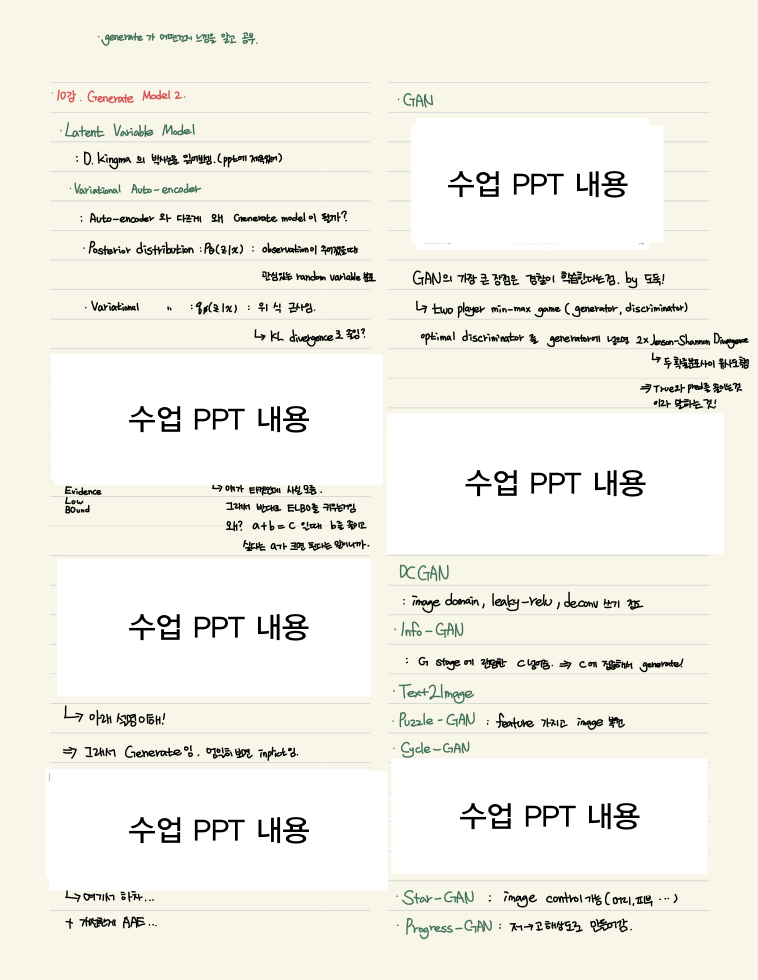 · generate가 어떤건지 느낌을 알고 공부.
· 10강. Generate Model 2.
· Latent Variable Model
: D. Kingma 의 박사논문 읽어볼것. (ppt에 제목있어)
· Variational Auto-encoder
: Auto-encoder 와 다르게 왜 Generate model이 될까?
· Posterior distribution : Pθ(z|x) : observation이 주어졌을때
관심있는 random variable 분포
· Variational " : qφ(z|x) : 위 식 근사임.
↳ KL divergence로 줄임?
수업 PPT 내용
Evidence
Low
BOund
↳ 얘가 타켓인데 사실 모름.
그래서 반대로 ELBO를 키우는거임
왜? a+b = C 인때 b를 줄이고
싶다는 a가 크면 된다는 말이니까.
수업 PPT 내용
↳ 아래 설명이해!
⇒ 그래서 Generate임. 엄밀히 보면 implict임.
수업 PPT 내용
↳ 여기서 하차...
+ 개선한게 AAE...
· GAN
수업 PPT 내용
GAN의 가장 큰 장점은 경찰이 학습한다는점. by 도둑!
↳ two player min-max game (generator, discriminator)
optimal discriminator 를 generator에 넣으면 2x Jenson-Shannon Divergence
↳ 두 확률분포사이 유사도행
⇒ True와 pred를 줄이는것
이라 말하는 것!
수업 PPT 내용
DCGAN
: image domain, leaky-relu, deconv 쓰기 정도
· Info-GAN
: G stage에 간단한 C넣어줌. ⇒ C에 집중해서 generate!
· Text2Image
· Puzzle-GAN : feature 가지고 image 복원
· Cycle-GAN
수업 PPT 내용
· Star-GAN : image control 가능 (머리, 피부 ...)
· Progress-GAN : 저→고 해상도로 만들어감.